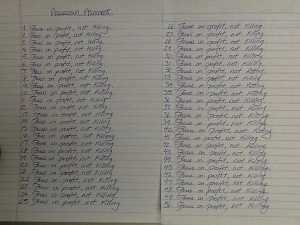 1. Focus on profit, not Killing.
2. Focus on profit, not Killing.
3. Focus on profit, not Killing.
4. Focus on profit, not Killing.
5. Focus on profit, not Killing.
6. Focus on profit, not Killing.
7. Focus on profit, not Killing.
8. Focus on profit, not Killing.
9. Focus on profit, not Killing.
10. Focus on profit, not Killing.
11. Focus on profit, not Killing.
12. Focus on profit, not Killing.
13. Focus on profit, not Killing.
14. Focus on profit, not Killing.
15. Focus on profit, not Killing.
16. Focus on profit, not Killing.
17. Focus on profit, not Killing.
18. Focus on profit, not Killing.
19. Focus on profit, not Killing.
20. Focus on profit, not Killing.
21. Focus on profit, not Killing.
22. Focus on profit, not Killing.
23. Focus on profit, not Killing.
24. Focus on profit, not Killing.
25. Focus on profit, not Killing.
26. Focus on profit, not Killing.
27. Focus on profit, not Killing.
28. Focus on profit, not Killing.
29. Focus on profit, not Killing.
30. Focus on profit, not Killing.
31. Focus on profit, not Killing.
32. Focus on profit, not Killing.
33. Focus on profit, not Killing.
34. Focus on profit, not Killing.
35. Focus on profit, not Killing.
36. Focus on profit, not Killing.
37. Focus on profit, not Killing.
38. Focus on profit, not Killing.
39. Focus on profit, not Killing.
40. Focus on profit, not Killing.
41. Focus on profit, not Killing.
42. Focus on profit, not Killing.
43. Focus on profit, not Killing.
44. Focus on profit, not Killing.
45. Focus on profit, not Killing.
46. Focus on profit, not Killing.
47. Focus on profit, not Killing.
48. Focus on profit, not Killing.
49. Focus on profit, not Killing.
50. Focus on profit, not Killing.